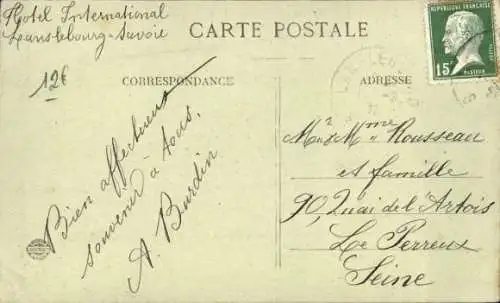 Hotel International
Lanslebourg-Savoie
CARTE POSTALE
REPUBLIQUE FRANÇAISE
15c
PASTEUR
12€
CORRESPONDANCE
ADRESSE
Bien affectueux
souvenir à tous,
A. Burdin
Mr & Mme Rousseau
et famille
90, Quai de l'Artois
Le Perreux
Seine